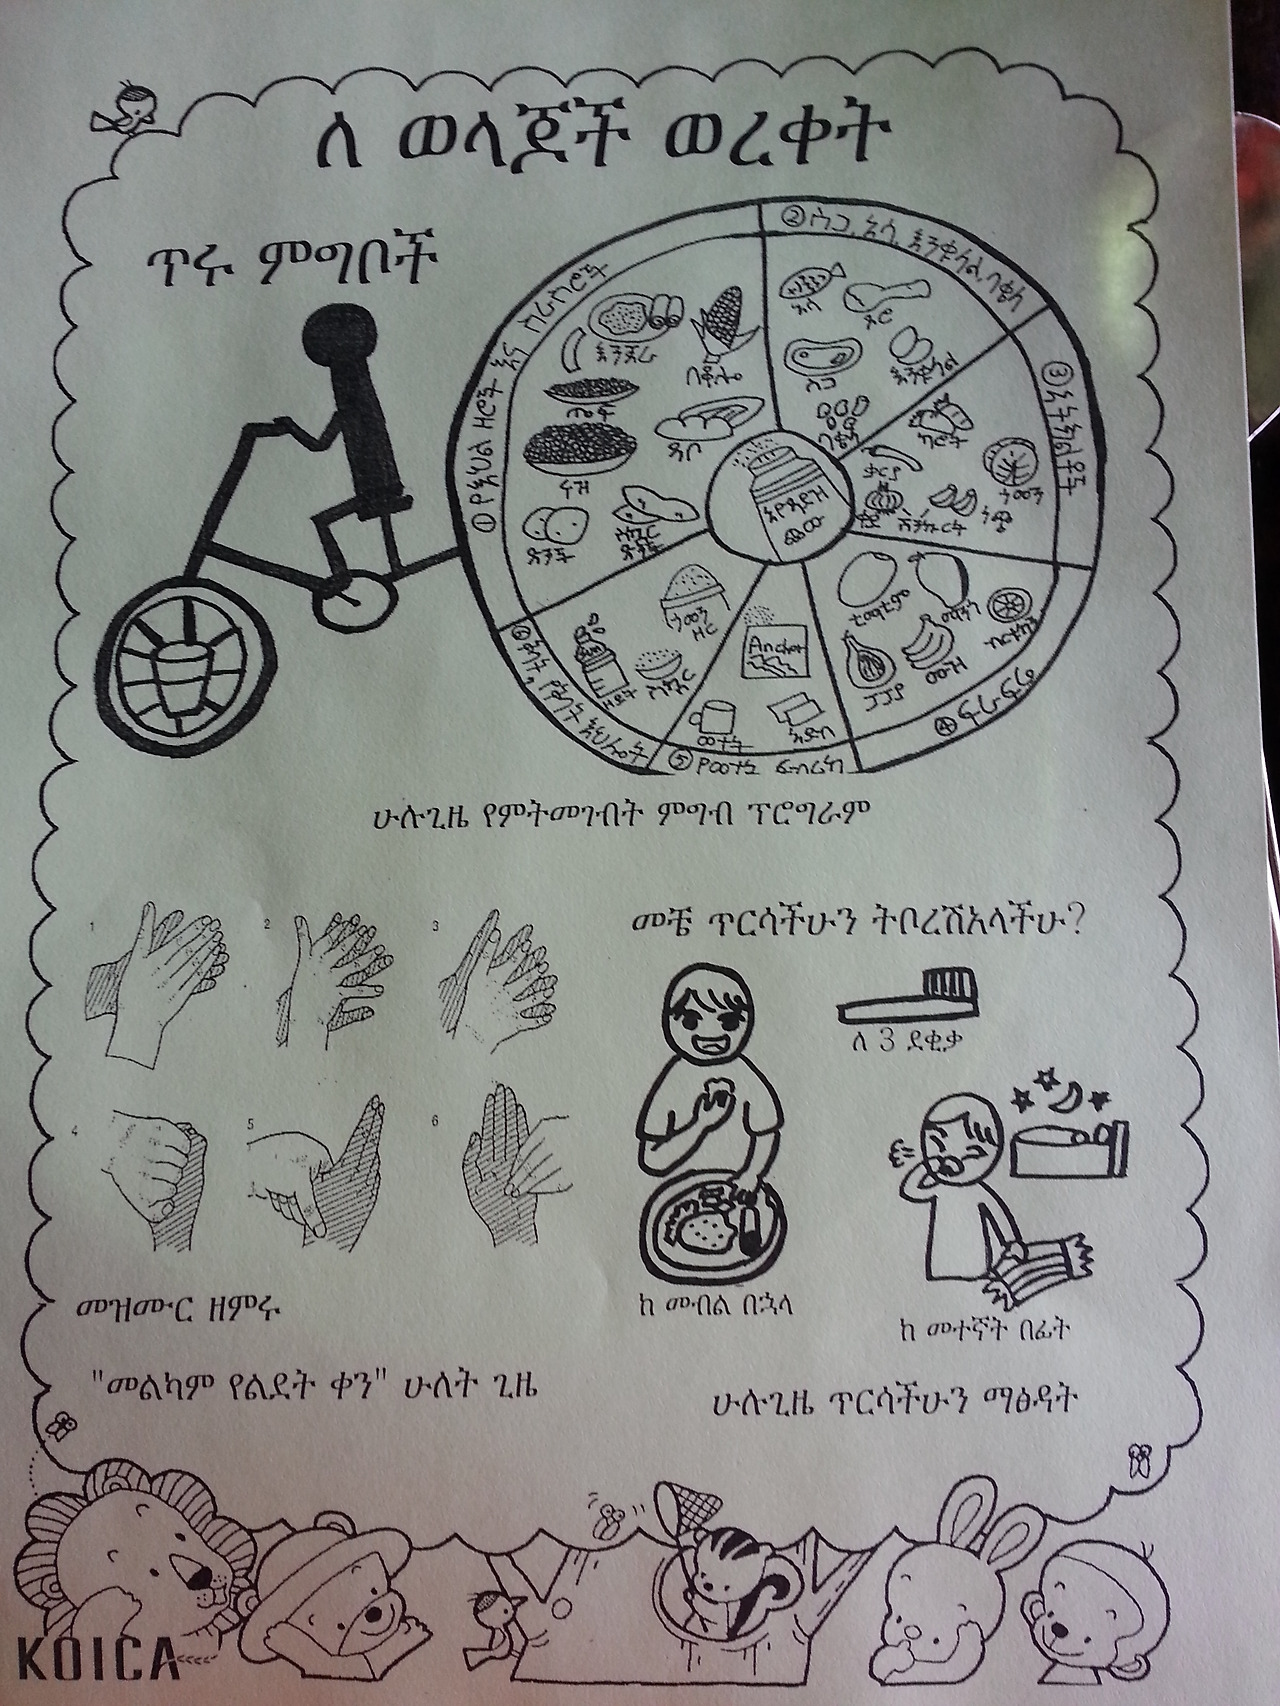 ለ ወላጆች ወረቀት
ጥሩ ምግቦች
① የእህል ዘሮች እና ስራስሮች
እንጀራ
በቆሎ
ጤፍ
ዳቦ
ሩዝ
ድንች
ስኳር ድንች
② ስጋ, አሳ, እንቁላል, ባቄላ
አሳ
ዶሮ
ስጋ
እንቁላል
ባቄላ
③ አትክልቶች
ካሮት
ቃርያ
ጎመን
ሽንኩርት
አዮዳይዝ
ጨው
④ ፍራፍሬ
ቲማቲም
ማንጎ
ብርቱካን
ሙዝ
ፓፓያ
⑤ የወተት
Anchor
ወተት
ዘይት
ስኳር
ሁሉጊዜ የምትመገብት ምግብ ፕሮግራም
1
2
3
4
5
6
መዝሙር ዘምሩ
"መልካም የልደት ቀን" ሁለት ጊዜ
መቼ ጥርሳችሁን ትቦረሽአላችሁ?
ለ 3 ደቂቃ
ከ መብል በኋላ
ከ መተኛት በፊት
ሁሉጊዜ ጥርሳችሁን ማፅዳት
KOICA